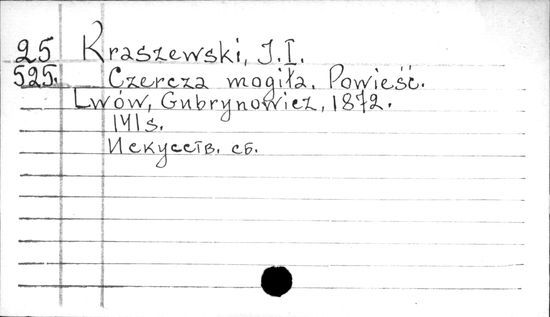 25 Kraszewski, J.I.
525. Czercza mogiła. Powieść.
Lwów, Gubrynowicz, 1872.
141 s.
Искусств. сб.